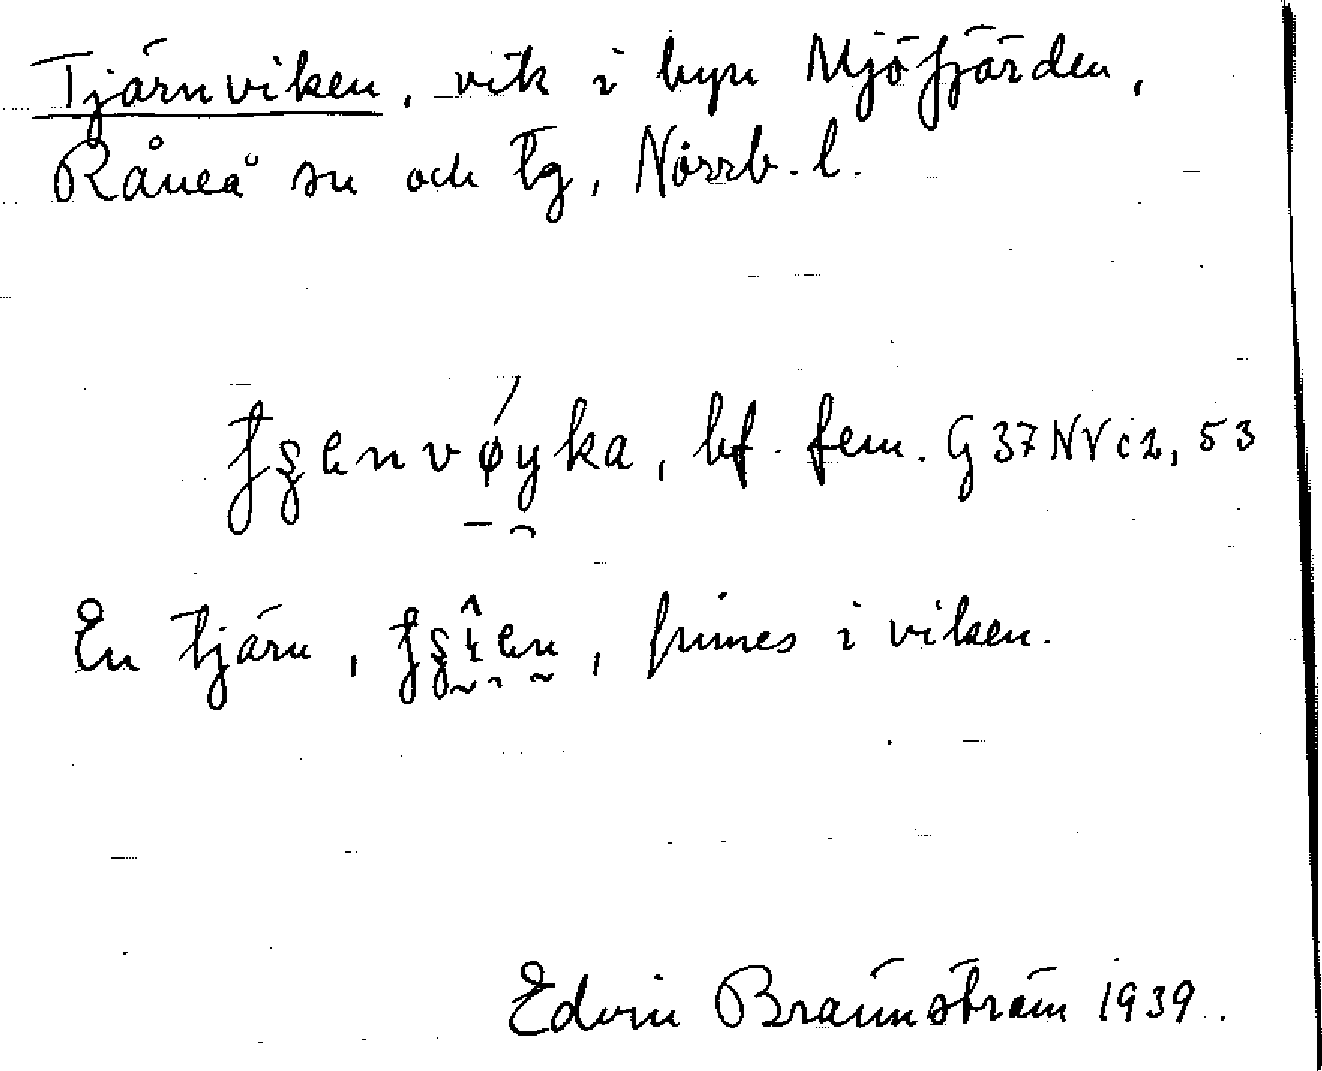 Tjärnviken, vik i byn Mjöfjärden,
Råneå sn och tg, Norrb. l.
bf. fem. G 37 NV c 2, 53
En tjärn, , finnes i viken.
Edvin Brännström 1939.